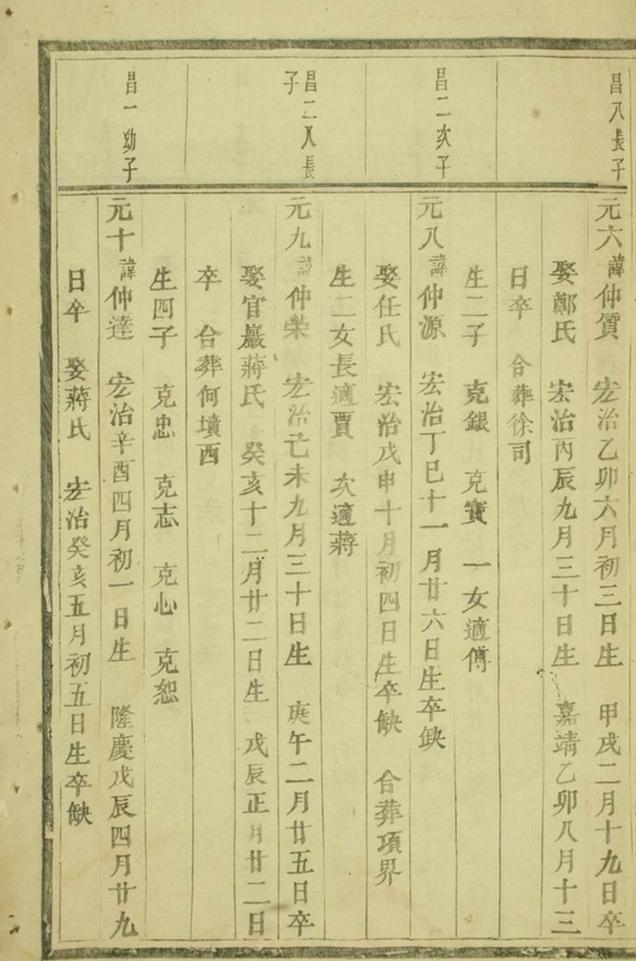 昌八長子
元六諱仲質 宏治乙卯六月初三日生 甲戌二月十九日卒
娶鄭氏 宏治丙辰九月三十日生 嘉靖乙卯八月十三
日卒 合葬徐司
生二子 克銀 克寶 一女適傅
昌二次子
元八諱仲源 宏治丁巳十一月廿六日生卒缺
娶任氏 宏治戊申十月初四日生卒缺 合葬項界
生二女長適賈 次適蔣
昌二八長
子
元九諱仲榮 宏治己未九月三十日生 庚午二月廿五日卒
娶官巖蔣氏 癸亥十二月廿二日生 戊辰正月廿二日
卒 合葬何墳酉
生四子 克忠 克志 克心 克恕
昌一幼子
元十諱仲達 宏治辛酉四月初一日生 隆慶戊辰四月廿九
日卒 娶蔣氏 宏治癸亥五月初五日生卒缺